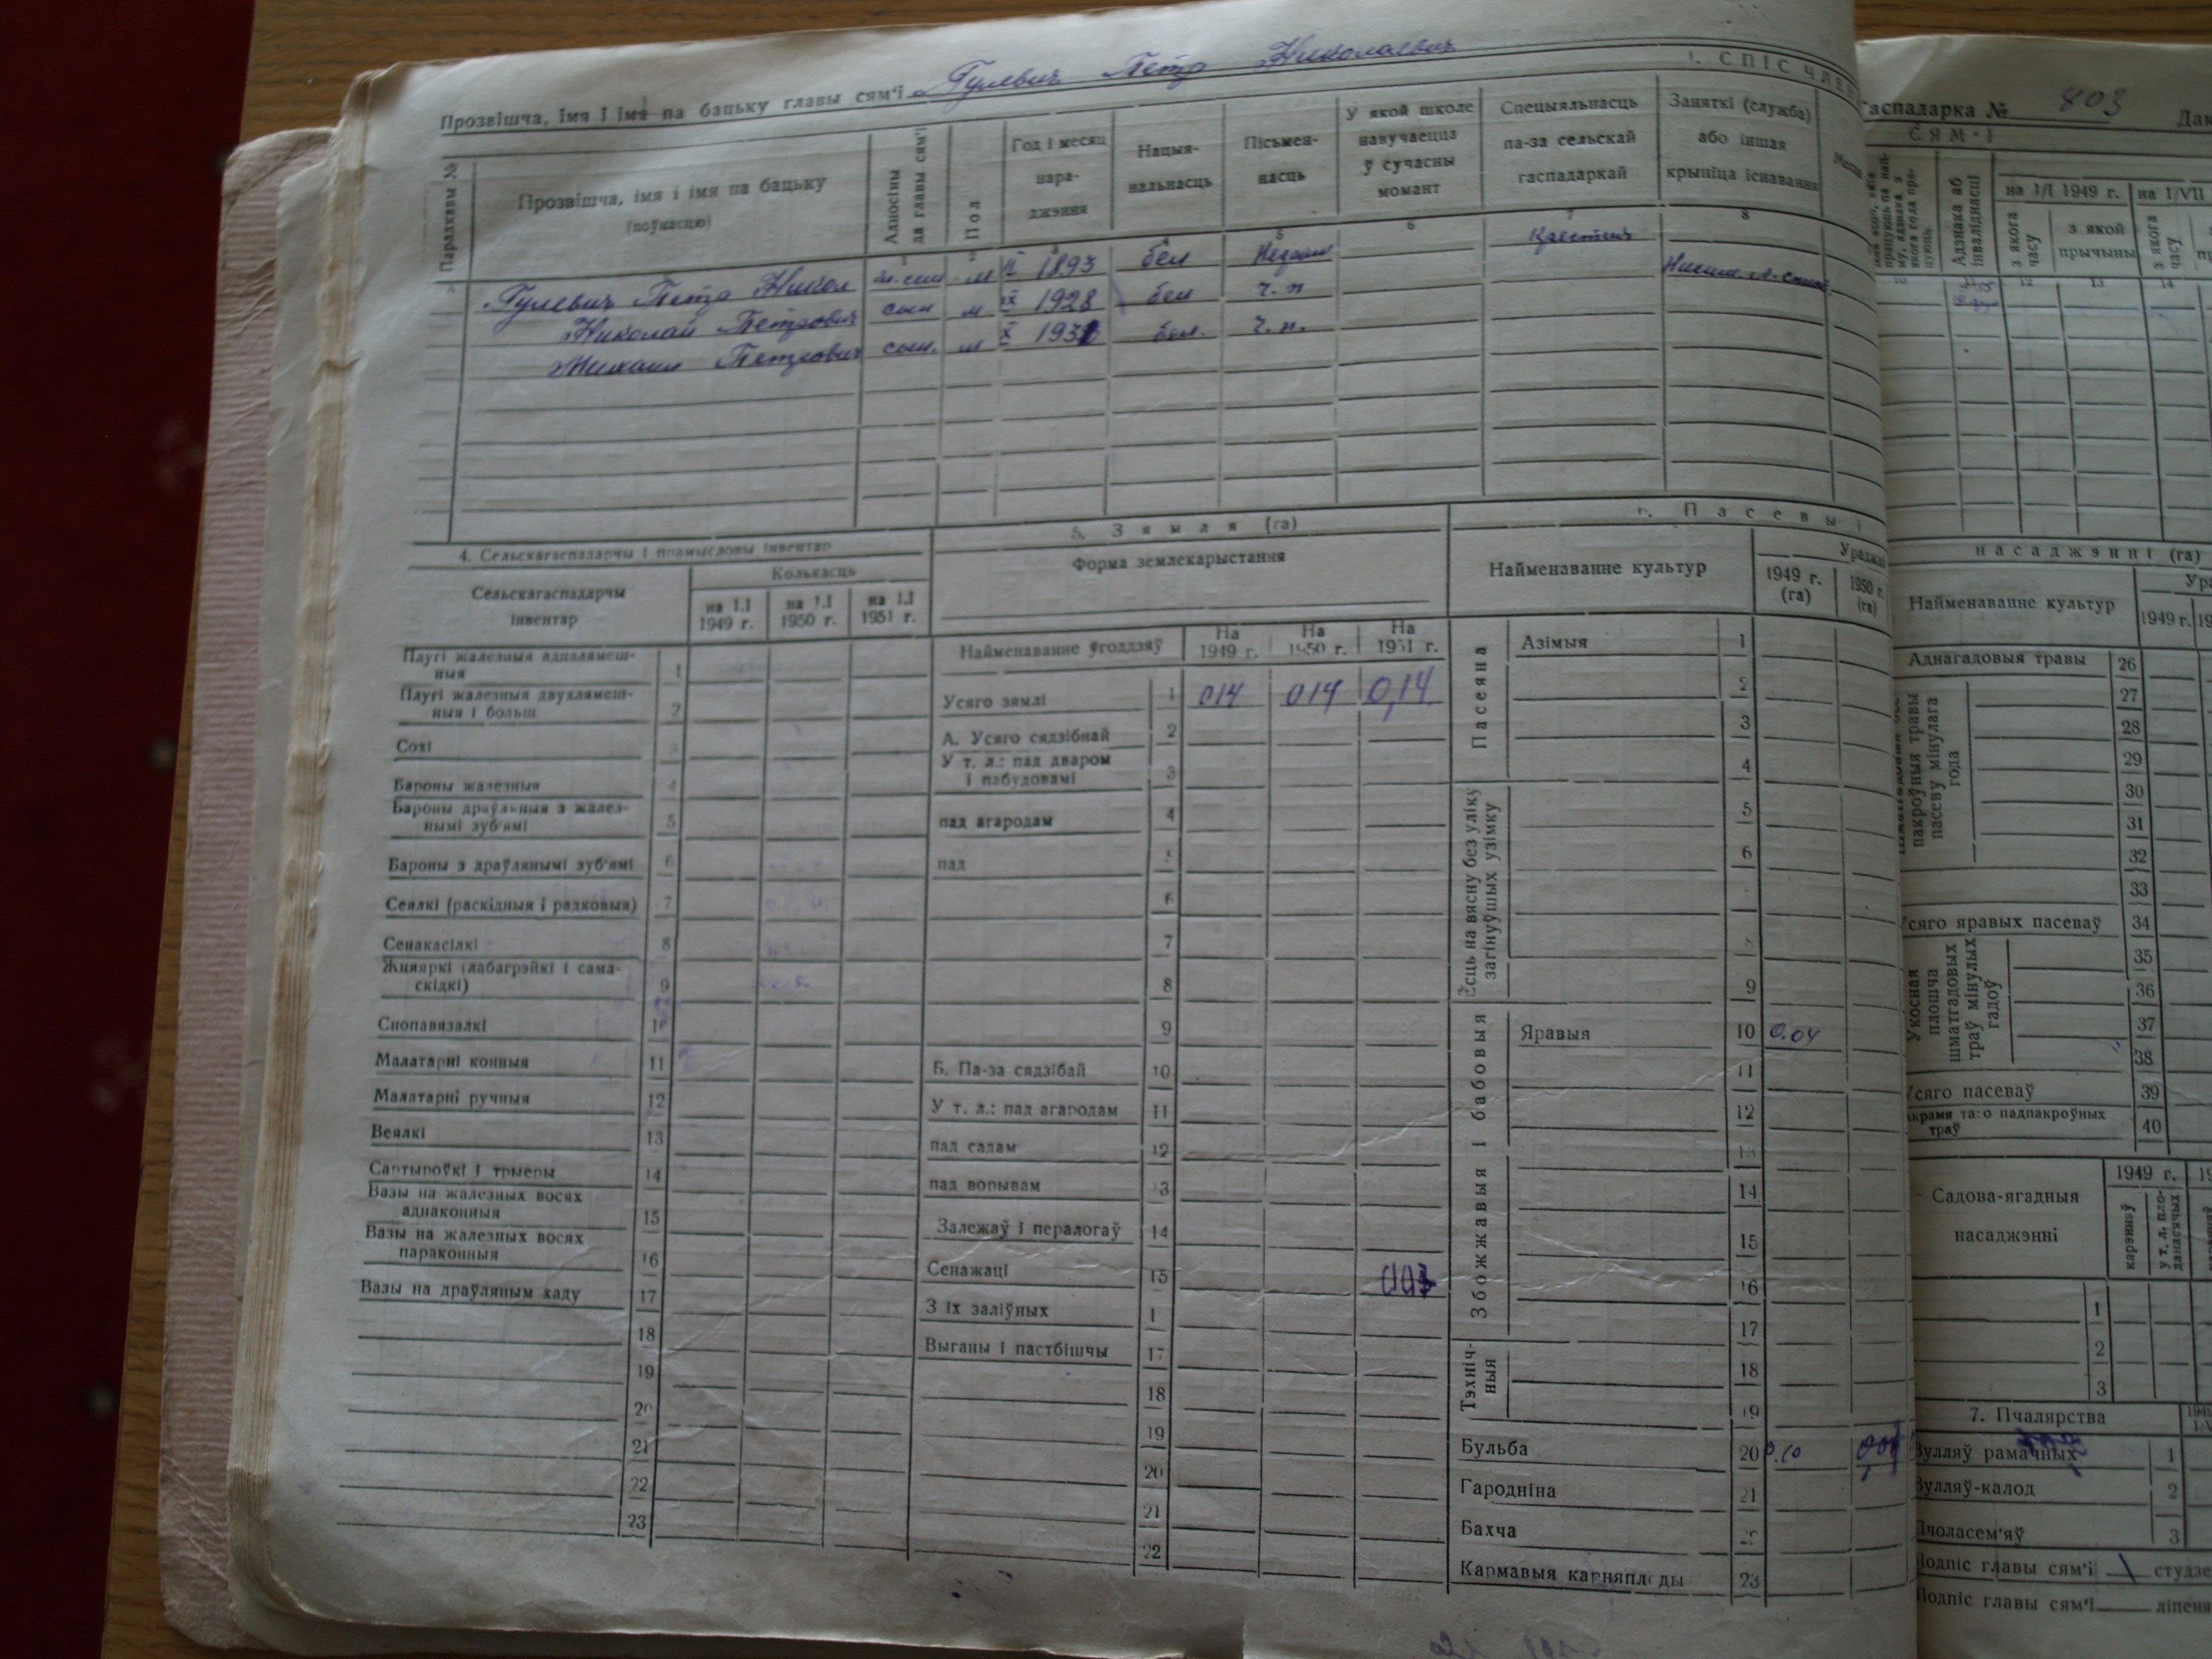 Прозвішча, імя і імя па бацьку главы сям'і Гулевич Петр Николаевич
1. СПІС ЧЛЕ
Парадкавы №
Прозвішча, імя і імя па бацьку
(поўнасцю)
Адносіны да главы сям'і
Пол
Год і месяц нара-джэння
Нацыя-нальнасць
Пісьмен-насць
У якой школе навучаецца ў сучасны момант
Спецыяльнасць па-за сельскай гаспадаркай
Заняткі (служба) або іншая крыніца існавання
1 2 3 4 5 6 7 8
Гулевич Петр Никол гл. сем м II 1893 бел Неграм
Николай Петрович сын м IX 1928 бел г. п
Михаил Петрович сын. м X 1931 бел. г. п.
4. Сельскагаспадарчы і прамысловы інвентар
Сельскагаспадарчы інвентар
Колькасць
на 1.I 1949 г.
на 1.I 1950 г.
на 1.I 1951 г.
Плугі жалезныя аднаlямеш-ныя 1
Плугі жалезныя двухлямеш-ныя і больш 2
Сохі 3
Бароны жалезныя 4
Бароны драўляныя з жалез-нымі зуб'ямі 5
Бароны з драўлянымі зуб'ямі 6
Сеялкі (раскідныя і радковыя) 7
Сенакасілкі 8
Жняяркі (лабагрэйкі і сама-скідкі) 9
Снопавязалкі 10
Малатарні конныя 11
Малатарні ручныя 12
Веялкі 13
Сартыроўкі і трыеры 14
Вазы на жалезных восях аднаконныя 15
Вазы на жалезных восях параконныя 16
Вазы на драўляным хаду 17
18
19
20
21
22
23
5. Зямля (га)
Форма землекарыстання
Найменаванне ўгоддзяў
На 1949 г.
На 1950 г.
На 1951 г.
Усяго зямлі 1 014 014 0,14
А. Усяго сядзібнай 2
У т. л.: пад дваром і пабудовамі 3
пад агародам 4
пад 5
6
7
8
9
Б. Па-за сядзібай 10
У т. л.: пад агародам 11
пад садам 12
пад ворывам 13
Залежаў і пералогаў 14
Сенажаці 15
З іх заліўных 1
Выганы і пастбішчы 17
18
19
20
21
22
6. Пасевы і
Найменаванне культур
Ураджай
1949 г. (га)
1950 г. (га)
Пасеяна
Азімыя 1
2
3
4
Ёсць на вясну без уліку загінуўшых узімку
5
6
9
Збожжавыя і бабовыя
Яравыя 10 0.04
11
12
13
14
15
16
17
Тэхніч-ныя
18
19
Бульба 20 0.10
Гародніна 21
Бахча
Кармавыя карняплоды 23
Гаспадарка № 803
СЯМ'І
Адзнака аб інваліднасці
на 1/I 1949 г.
на 1/VII
з якога часу
з якой прычыны
з якога часу
12 13 14
насаджэнні (га)
Найменаванне культур
1949 г.
Аднагадовыя травы 26
пакроўныя травы пасеву мінулага года
27
28
29
30
31
32
33
Усяго яравых пасеваў 34
Укосная плошча шматгадовых траў мінулых гадоў
35
36
37
38
Усяго пасеваў 39
акрамя таго падпакроўных траў 40
Садова-ягадныя насаджэнні
1949 г.
карэнняў
у т. л. пло-даносячых
1
2
3
7. Пчалярства
Вулляў рамачных 1
Вулляў-калод 2
Пчоласем'яў 3
Подпіс главы сям'і студзе
Подпіс главы сям'і ліпеня